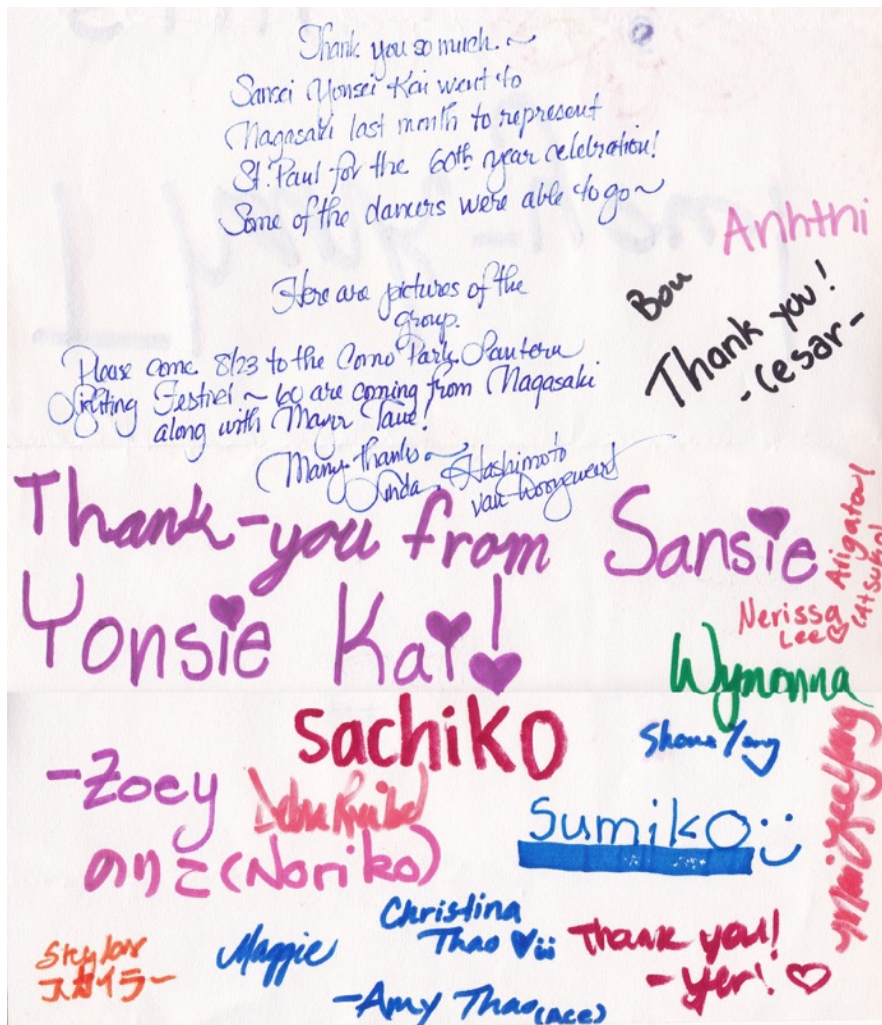 Thank you so much. ~
Sansei Yonsei Kai went to
Nagasaki last month to represent
St. Paul for the 60th year celebration!
Some of the dancers were able to go ~
Anhthi
Bou
Thank you!
-Cesar-
Here are pictures of the
group.
Please come 8/23 to the Como Park Lantern
Lighting Festival ~ 60 are coming from Nagasaki
along with Mayor Taue!
Many thanks ~
Linda Hashimoto
van Dooyeweert
Thank-you from Sansie
Yonsie Kai!
Arigatou
(Atsuko)
Nerissa
Lee
Wynonna
Sachiko
Shoua Yang
-Zoey
Debra
Sumiko
のりこ(Noriko)
Christina
Thao
Thank you!
-Yer!
Skylar
スカイラー
Maggie
-Amy Thao (Ace)